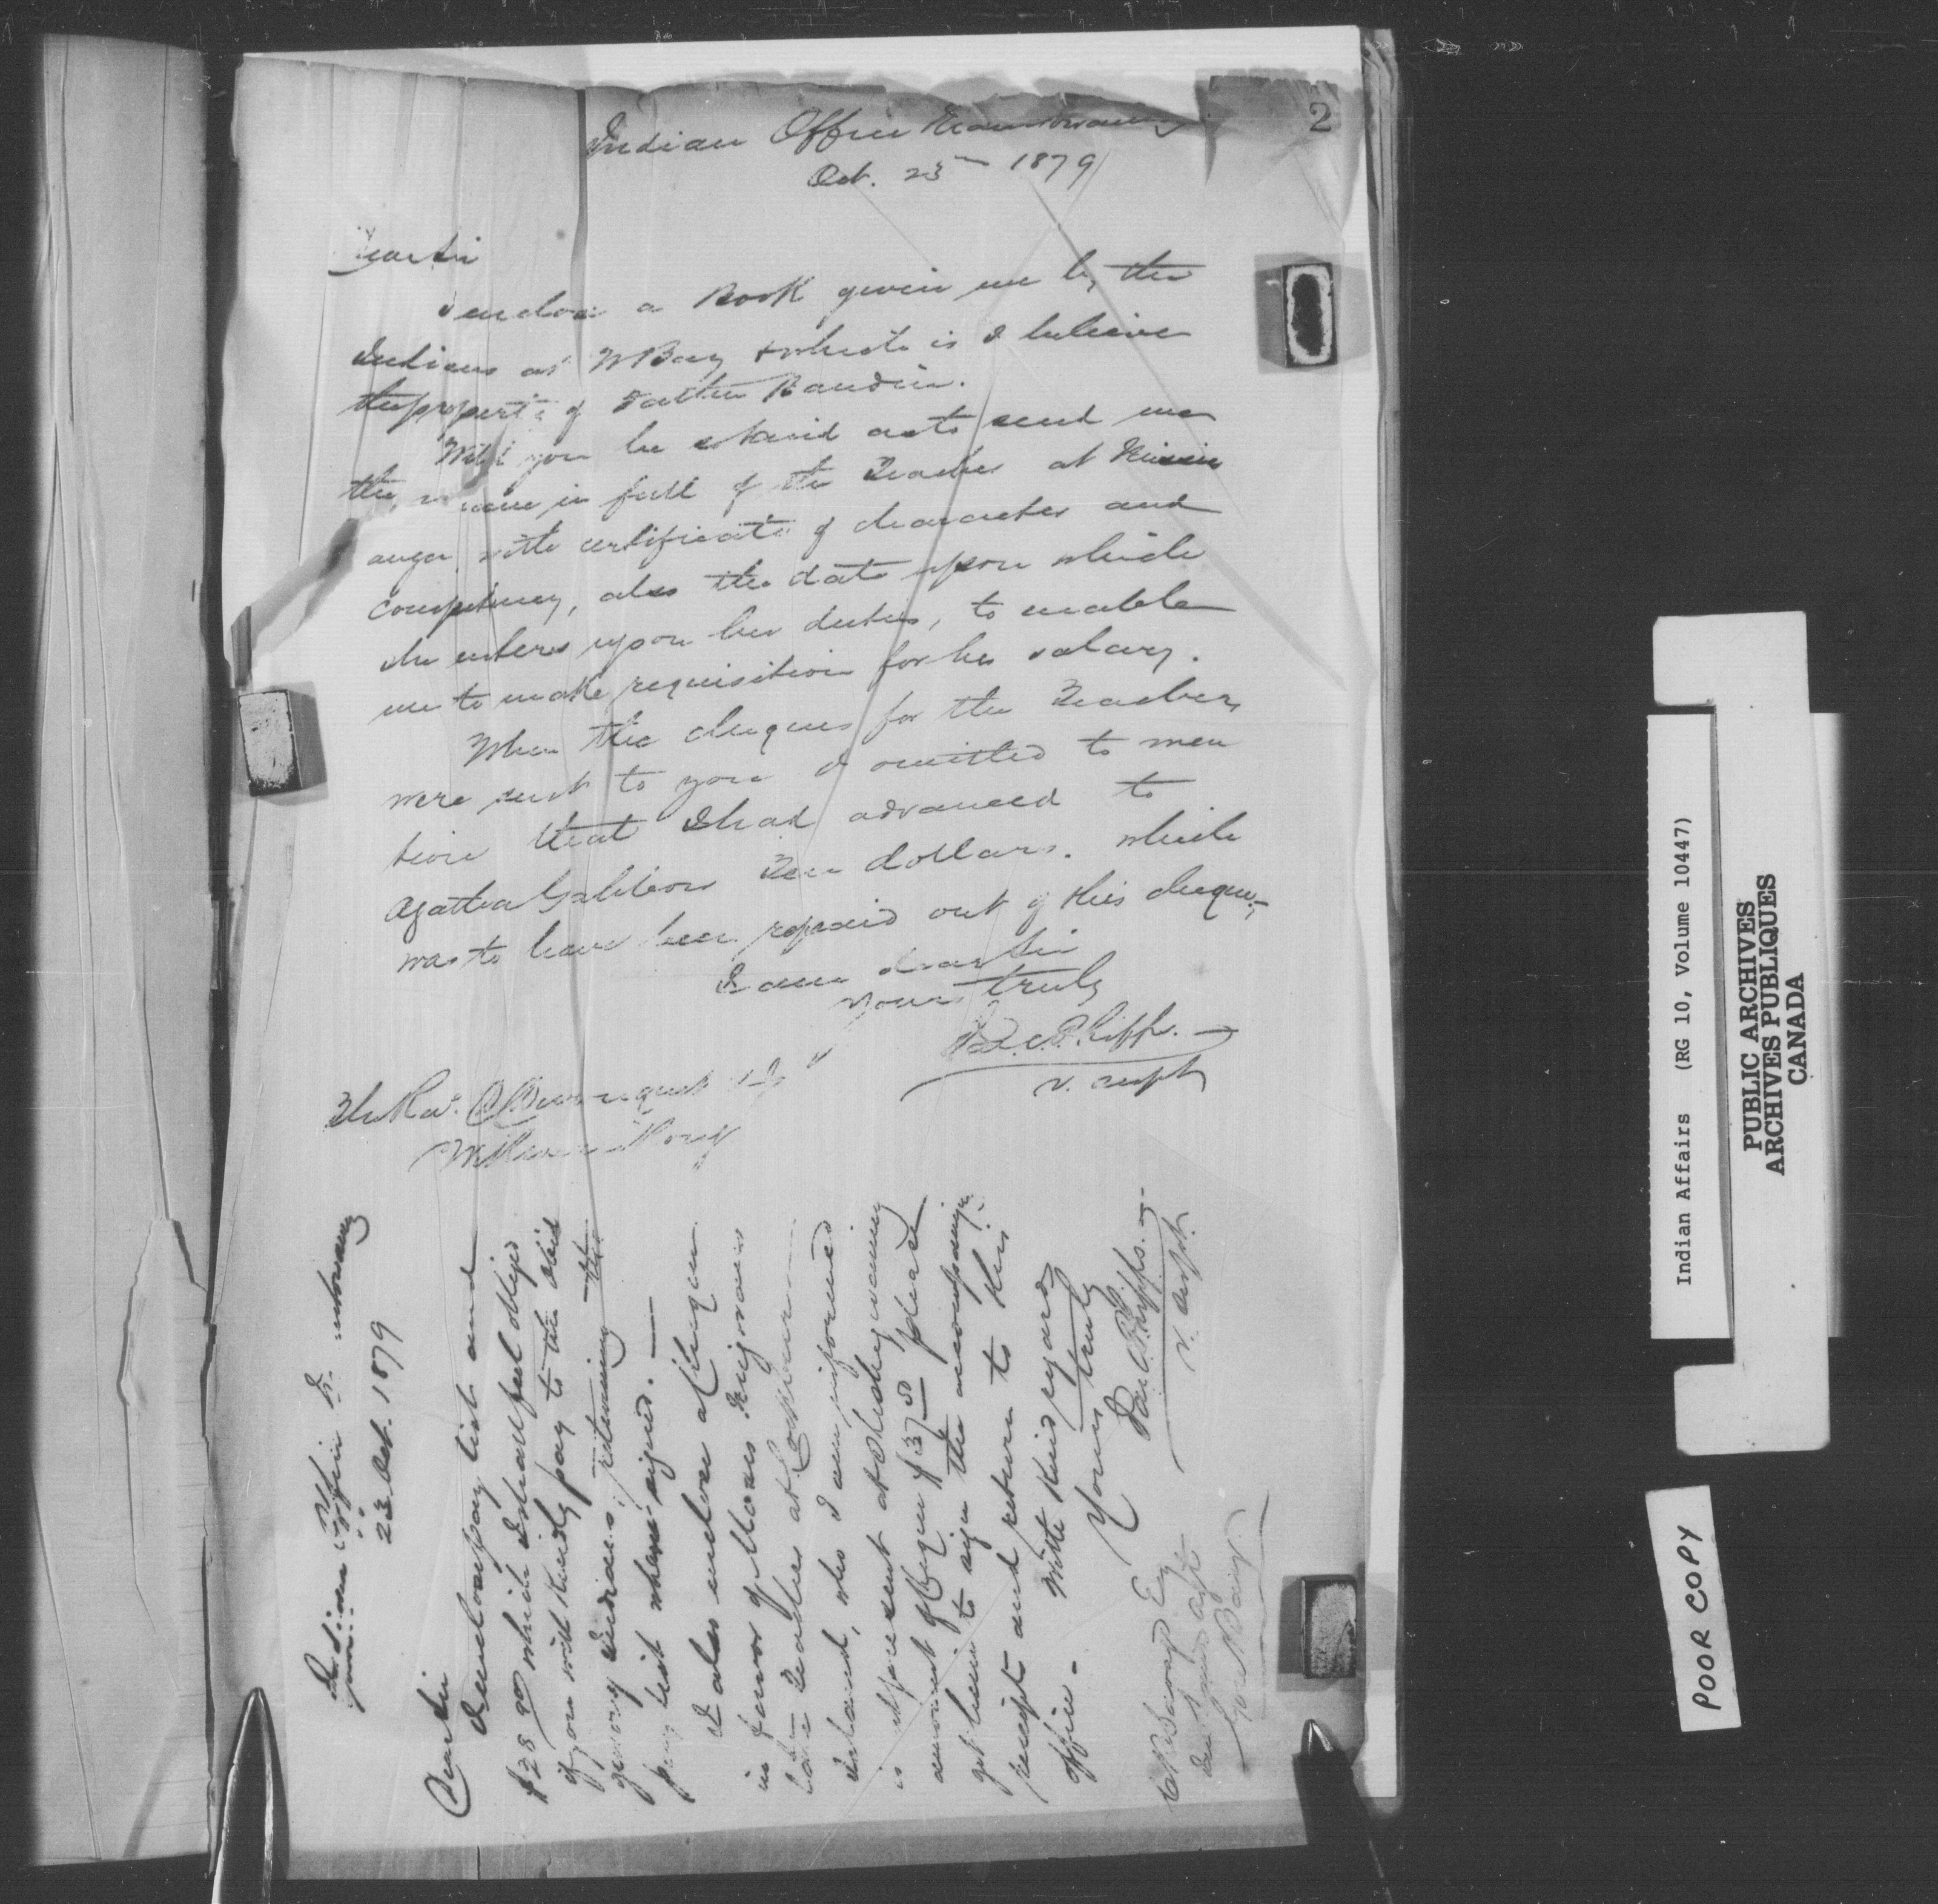 2
Indian Office Manitowaning
Oct. 23rd 1879
Dear Sir
I enclose a Book given me by the
Indians at W Bay & which is I believe
the property of Father
Will you be so kind as to send me
the name in full of the Teacher at
with certificate of character and
competency, also the date upon which
she enters upon her duties, to enable
me to make requisition for her salary.
When the cheques for the Teachers
were sent to you I omitted to men
tion that I had advanced to
Agatha Gabbeow Ten dollars. which
was to have been repaid out of this cheque,
I am dear Sir
Yours truly
Jas. C. Phipps.
V. Supt
The Rev.
Indian Office
23 Oct. 1879
Dear Sir
I send compay list and
$28 which I shall feel obliged
if you will kindly pay to the
Indians, returning the
pay list when signed.
I also enclose a Cheque
in favor of
late Teacher at
Island, who I am informed
is at present at Sheshegwaning
amount of Cheque $ 37 50 please
get him to sign the accompanying
receipt and return to this
office -
With kind regards
Yours truly
Jas. C. Phipps.
V. Supt.
Esq
Gore Bay
Indian Affairs (RG 10, Volume 10447)
PUBLIC ARCHIVES
ARCHIVES PUBLIQUES
CANADA
POOR COPY